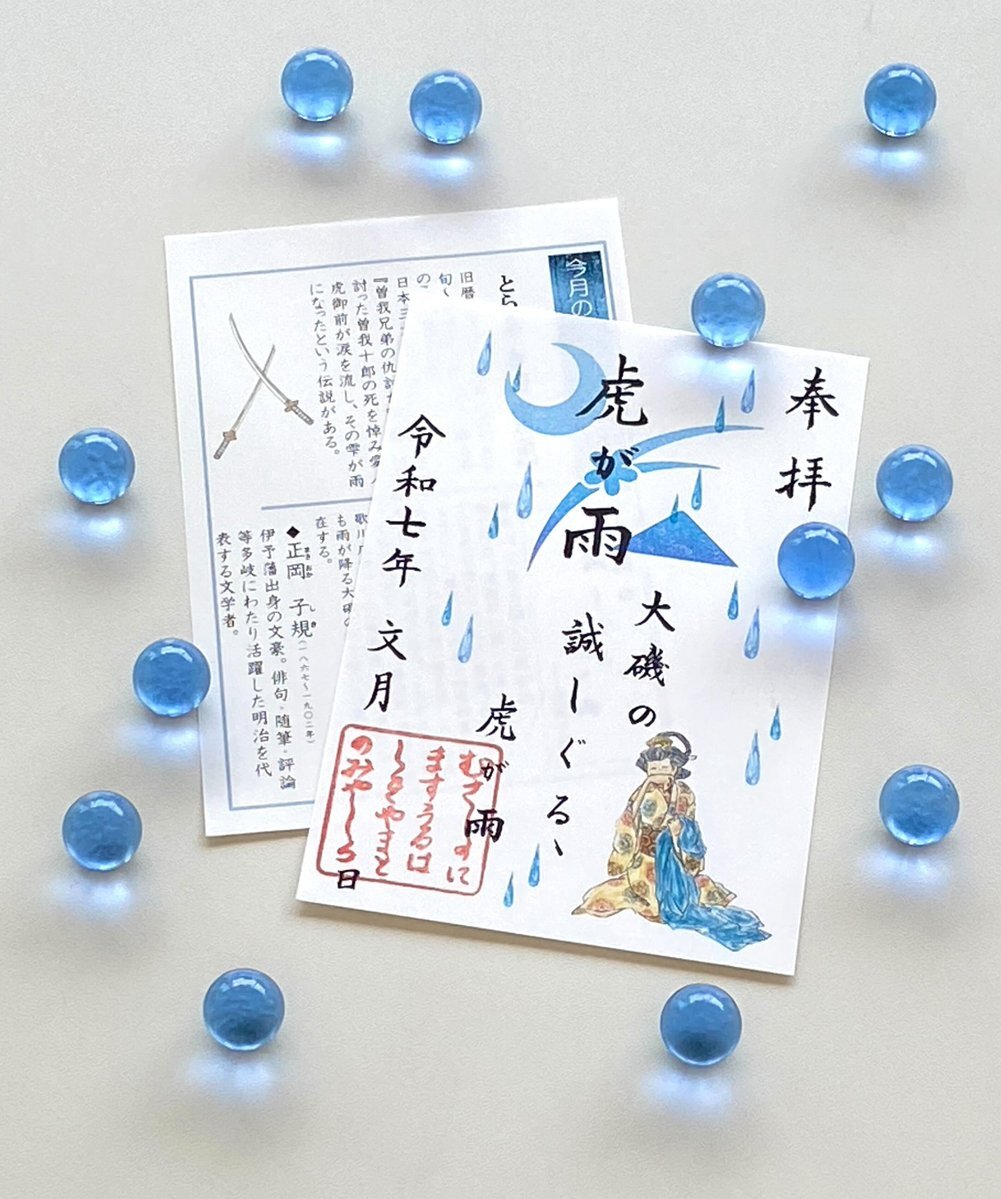 奉拝
虎が雨
大磯の
誠しぐるゝ
虎が雨
令和七年 文月 日
むさしのに
ますうるは
しきやまと
のみやしろ
今月の
とら
旧暦
旬
の
日本三
『曽我兄弟の仇討
討った曽我十郎の死を悼み愛
虎御前が涙を流し、その雫が雨
になったという伝説がある。
歌川
も雨が降る大磯の
在する。
◆正岡 子規(一八六七〜一九〇二年)
伊予藩出身の文豪。俳句・随筆・評論
等多岐にわたり活躍した明治を代
表する文学者。